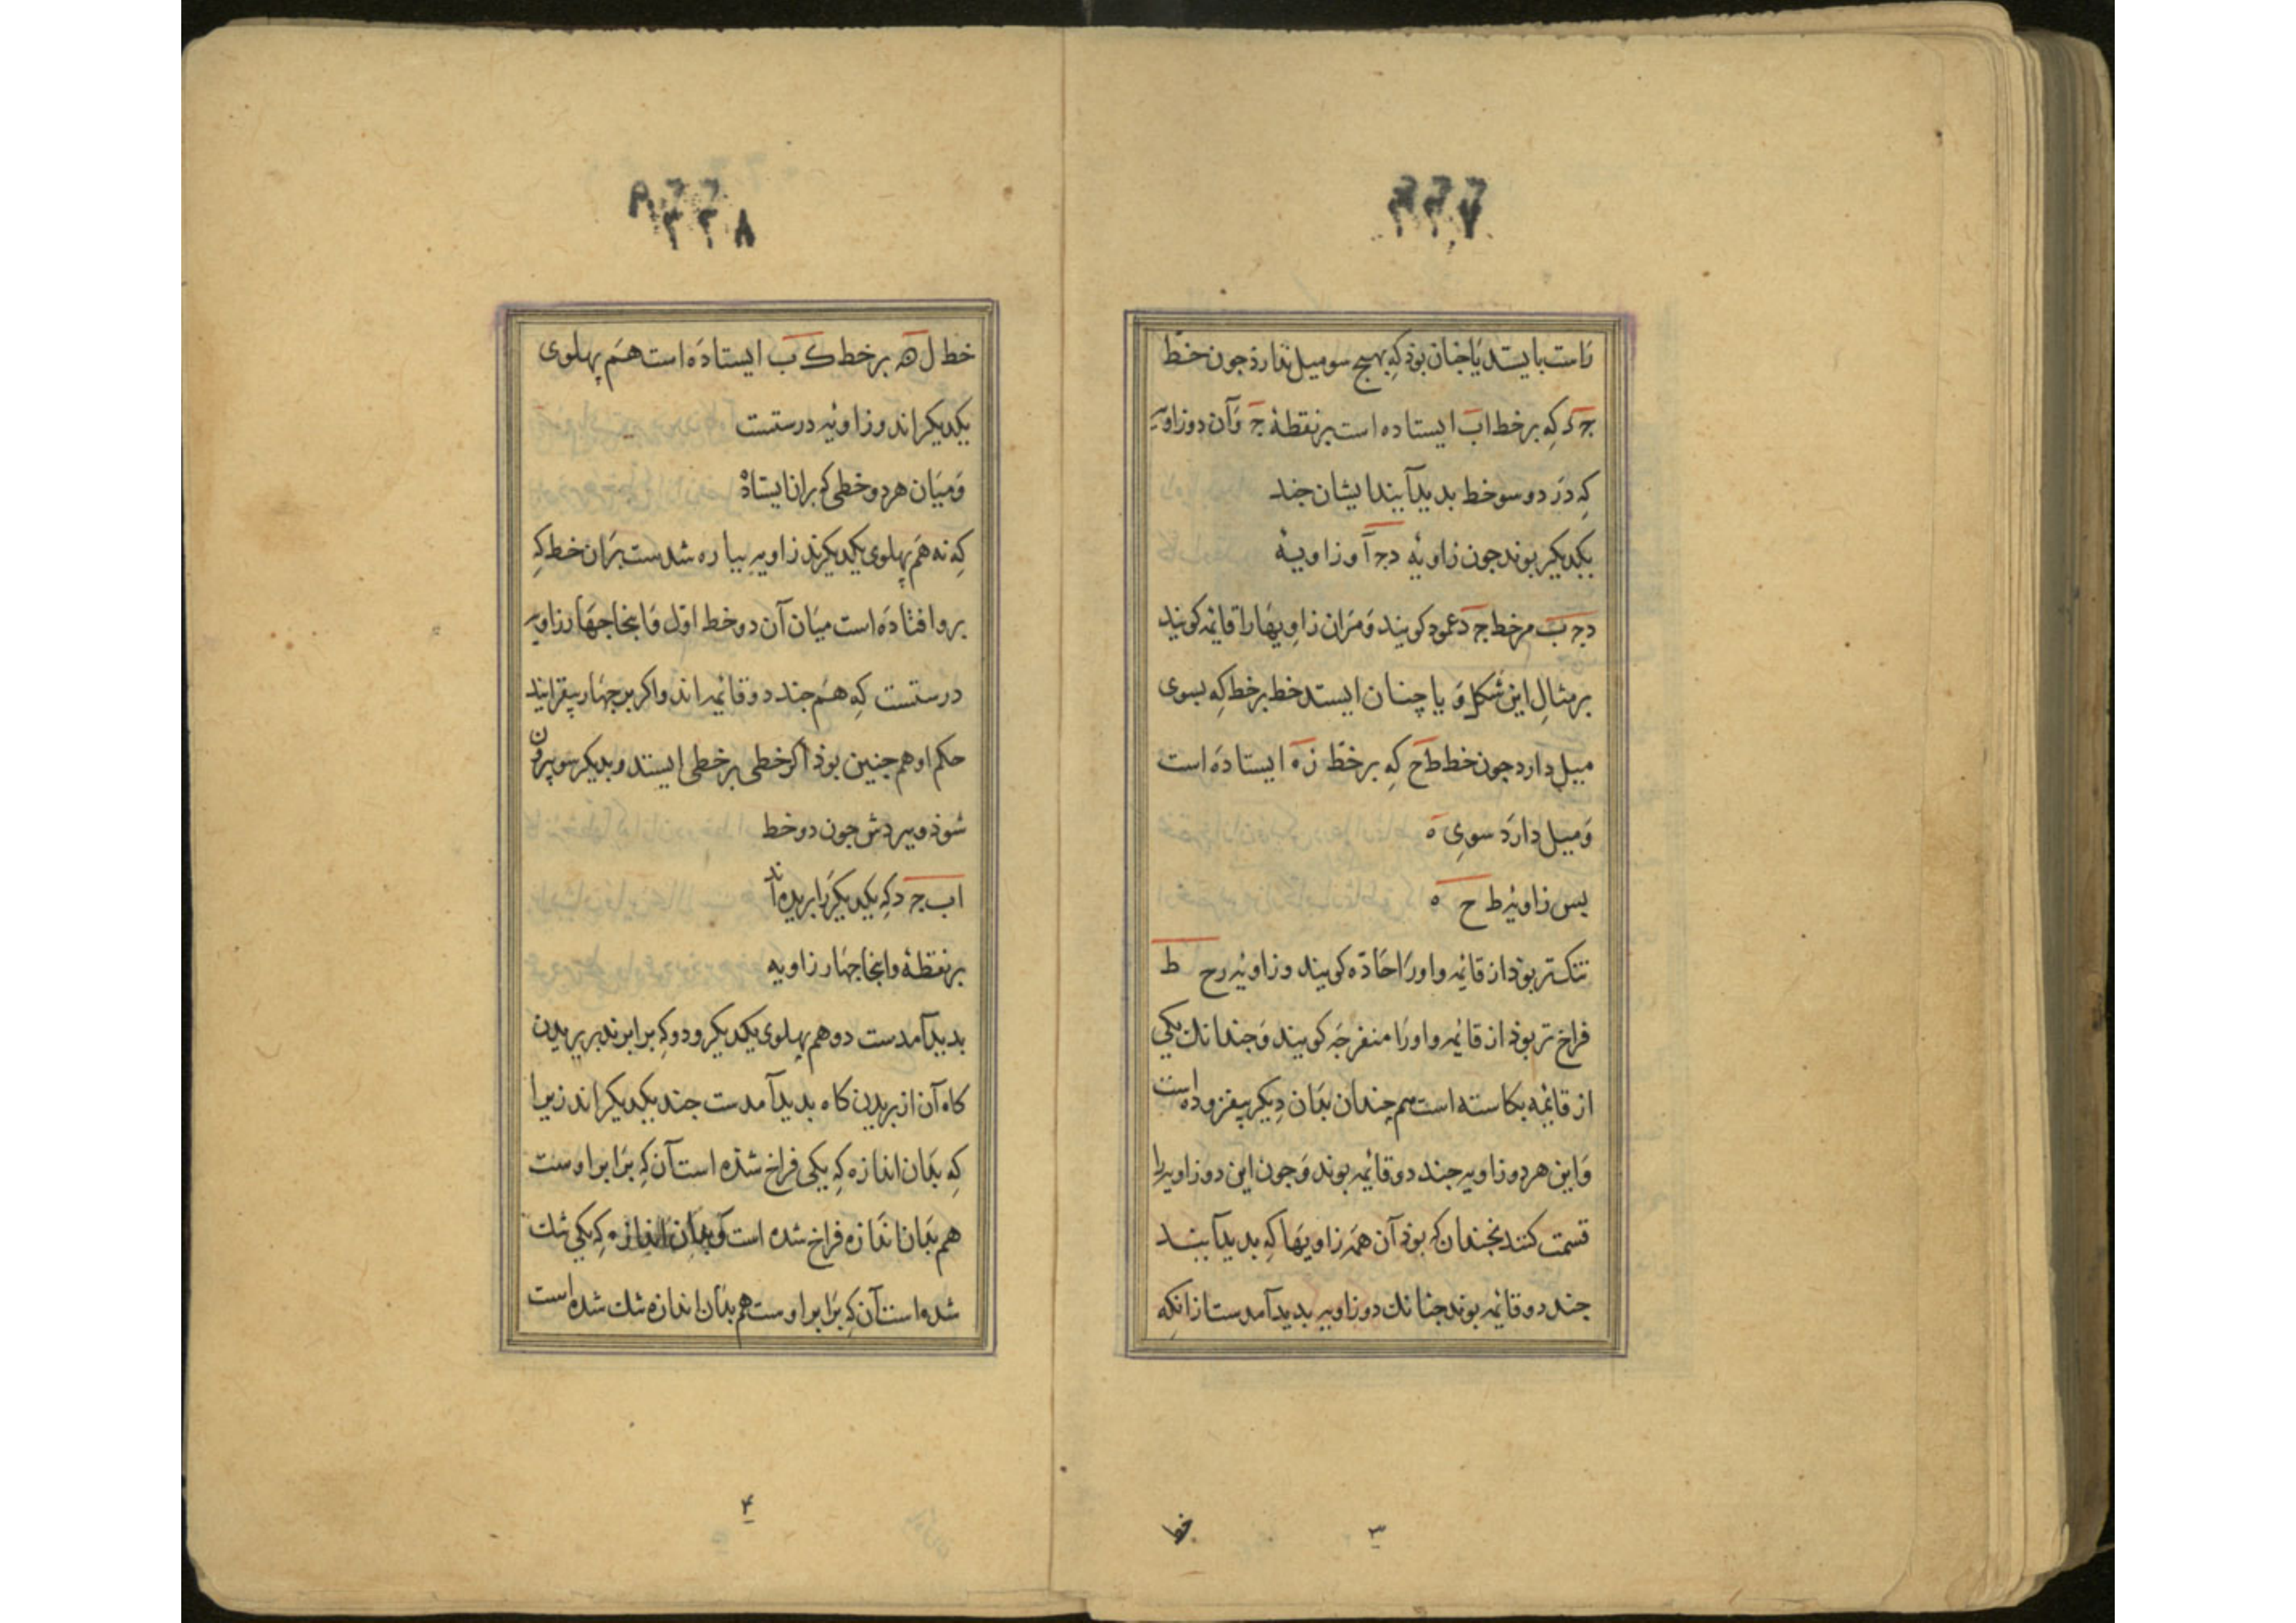 ۲۲۷
راست بایستد یا جنان بوذ که بهیج سو میل ندارذ جون خط
جد که بر خط اب ایستاده است بر نقطهٔ ج و آن دو زاویه
که در دو سو خط بدید آیند ایشان جند
یکدیکر بوند جون زاویهٔ دجا و زاویهٔ
دجب مر خط جد عمود کویند و مران زاویهها را قائمه کویند
بر مثال این شکل و یا چنان ایستد خط بر خط که بسوی
میل دارد جون خط طح که بر خط زه ایستاده است
و میل دارد سوی ه
بس زاویهٔ ط ح ه
تنکتر بوذ از قائمه و او را حاده کویند و زاویهٔ رح ط
فراخ تر بوذ از قائمه و او را منفرجه کویند و جندانك یکی
از قائمه بکاسته است هم چندان بدان دیکر بیفزوده است
و این هر دو زاویه جند دو قائمه بوند و جون این دو زاویه را
قسمت کنند بجندان که بوذ آن همه زاویهها که بدید آیند
جند دو قائمه بوند جنانك دو زاویه بدید آمدست ازانکه
خط
۳
۲۲۸
خط ل ه بر خط ک ب ایستاده است هم پهلوی
یکدیکر اند و زاویه درستست
و میان هر دو خطی که بران ایستاذ
که نه هم پهلوی یکدیکرند زاویه بیاره شدست بران خط که
برو افتاده است میان آن دو خط اول و اینجا جهار زاویه
درستست که هم جند دو قائمه اند و اکر بر جهار بیفزایند
حکم او هم جنین بوذ اکر خطی بر خطی ایستد و بدیکر سو برون
شوذ و ببردش جون دو خط
اب جد که یکدیکر را بریده اند
بر نقطهٔ و اینجا جهار زاویه
بدید آمدست دو هم پهلوی یکدیکر و دو که برابرند بر بریدن
کاه آن از بریدن کاه بدید آمدست جند یکدیکر اند زیرا
که بدان اندازه که یکی فراخ شذه است آن که برابر اوست
هم بدان اندازه فراخ شده است و بدان اندازه که یکی تنك
شده است آن که برابر اوست هم بدان اندازه تنك شده است
۴